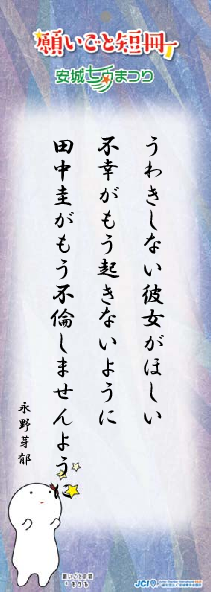 願いごと短冊
安城七夕まつり
うわきしない彼女がほしい
不幸がもう起きないように
田中圭がもう不倫しませんように
永野芽郁
願いごと短冊
JCI